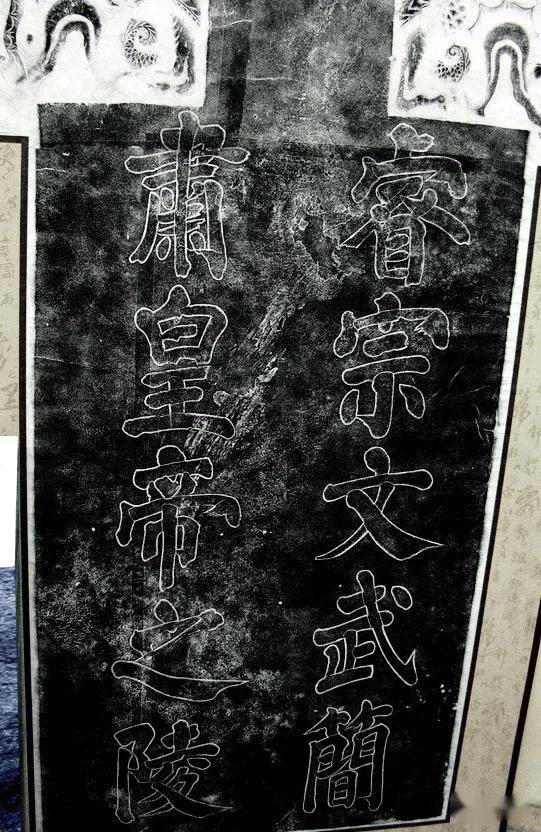 睿宗文武簡
肅皇帝之陵